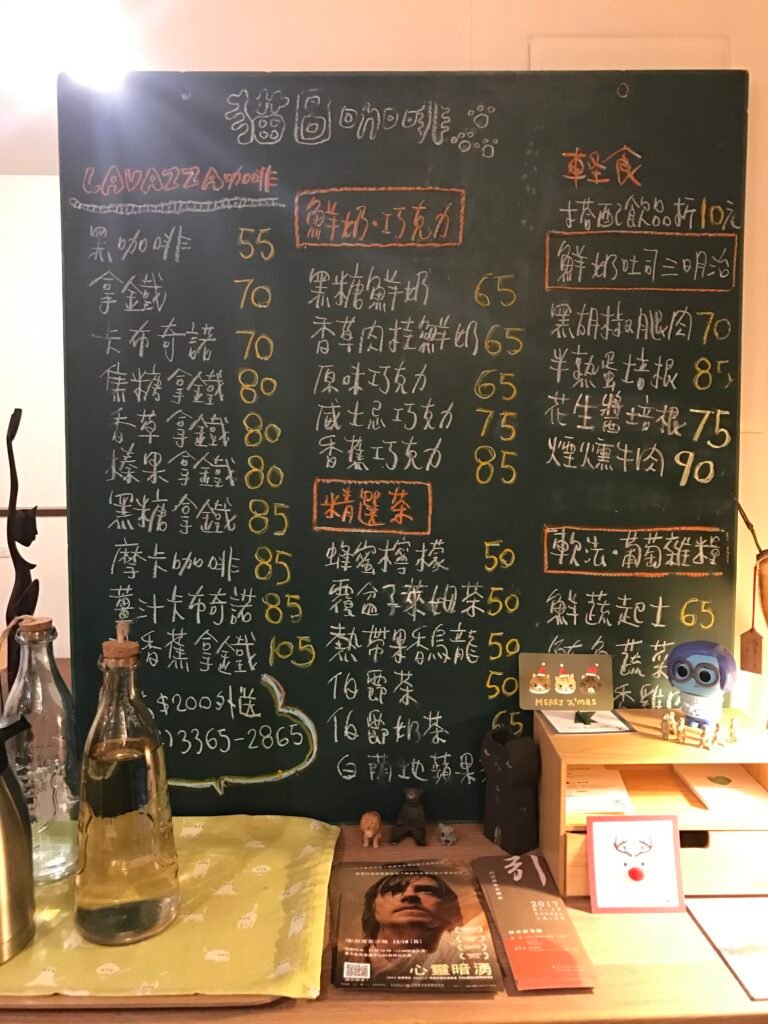 貓圖咖啡
LAVAZZA咖啡
黑咖啡 55
拿鐵 70
卡布奇諾 70
焦糖拿鐵 80
香草拿鐵 80
榛果拿鐵 80
黑糖拿鐵 85
摩卡咖啡 85
薑汁卡布奇諾 85
香蕉拿鐵 105
$200外送
)3365-2865
鮮奶·巧克力
黑糖鮮奶 65
香草肉桂鮮奶 65
原味巧克力 65
威士忌巧克力 75
香蕉巧克力 85
精選茶
蜂蜜檸檬 50
覆盆子萊姆茶 50
熱帶果香烏龍 50
伯爵茶 50
伯爵奶茶 65
白蘭地蘋果
輕食
搭配飲品折10元
鮮奶吐司三明治
黑胡椒腿肉 70
半熟蛋培根 85
花生醬培根 75
煙燻牛肉 90
軟法·葡萄雜糧
鮮蔬起士 65
蔬菜
MERRY X'MAS
心靈暗湧
引
2017